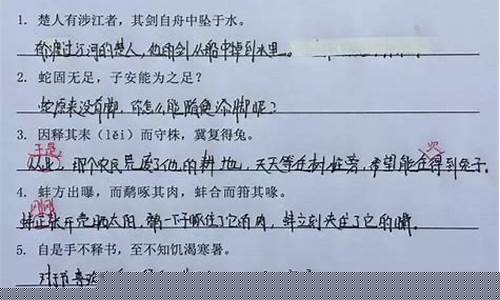 1. 楚人有涉江者，其剑自舟中坠于水。
有渡过江河的楚人，他的剑从船中掉到水里。
2. 蛇固无足，子安能为之足？
蛇原来没有脚，你怎么能随便添脚呢？
3. 因释其来（lěi）而守株，冀复得兔。
于是
从此，那个农民荒废了他的耕地，天天等在树桩旁，希望能在得到兔子。
4. 蚌方出曝，而鹬啄其肉，蚌合而箝其喙。
蚌正张开壳晒太阳，鹬一下子啄住了它的肉，蚌立刻夹住了它的嘴。
5. 自是手不释书，至不知饥渴寒暑。